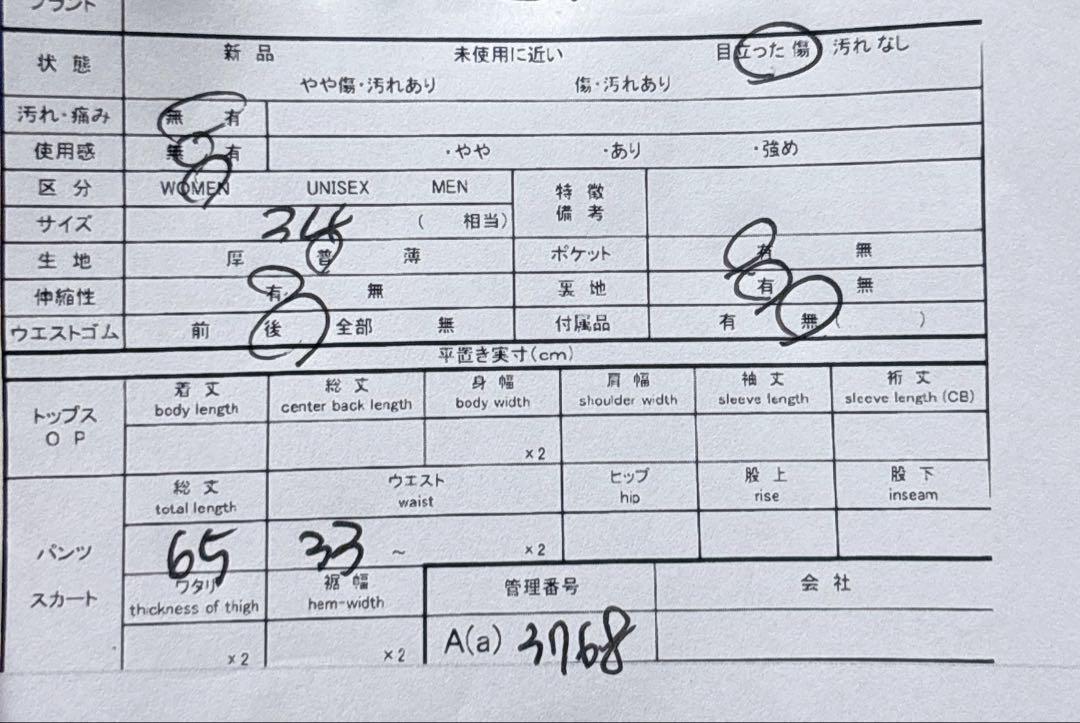 ブランド
状態 新品 未使用に近い 目立った傷 汚れなし
やや傷・汚れあり 傷・汚れあり
汚れ・痛み 無 有
使用感 無 有 ・やや ・あり ・強め
区分 WOMEN UNISEX MEN 特徴 備考
サイズ ( 相当)
生地 厚 普 薄 ポケット 有 無
伸縮性 有 無 裏地 有 無
ウエストゴム 前 後 全部 無 付属品 有 無 ( )
平置き実寸(cm)
トップス OP 着丈 総丈 身幅 肩幅 袖丈 裄丈
body length center back length body width shoulder width sleeve length sleeve length (CB)
×2
総丈 ウエスト ヒップ 股上 股下
total length waist hip rise inseam
パンツ 65 33 ~ ×2
スカート ワタリ 裾幅 管理番号 会社
thickness of thigh hem-width
×2 ×2 A(a) 3768